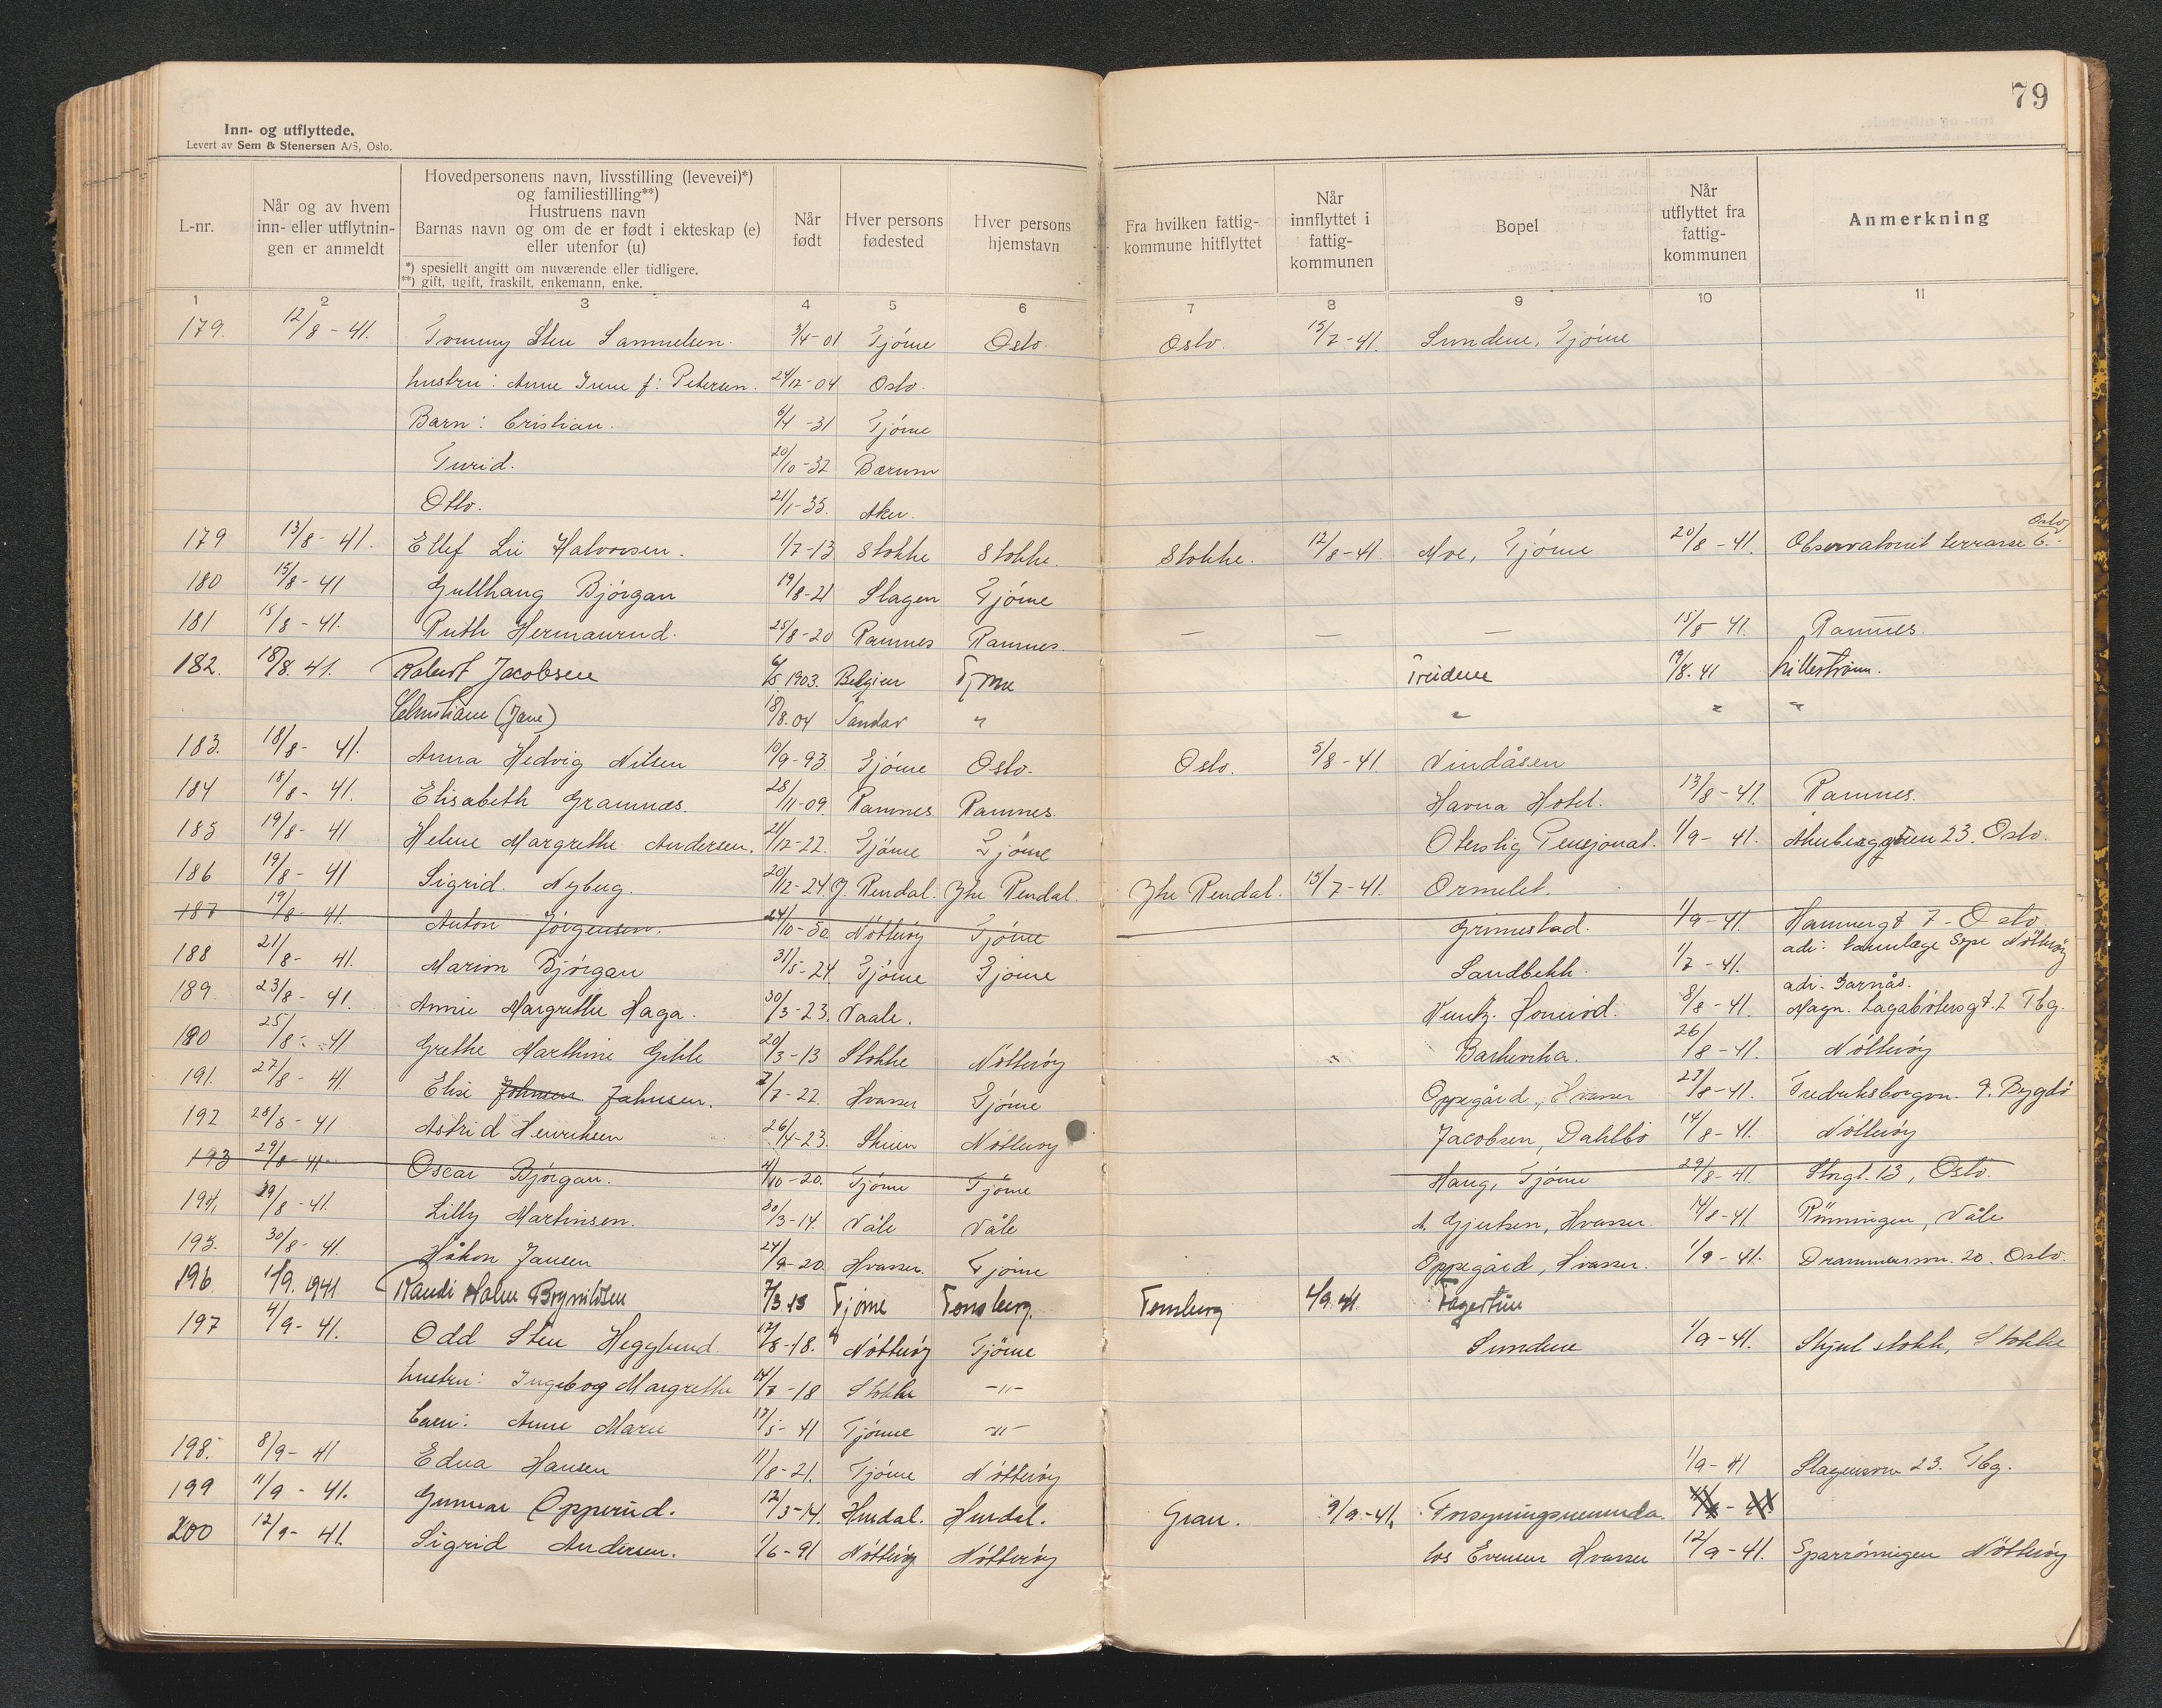 79
Inn- og utflyttede.
Levert av Sem & Stenersen A/S, Oslo.
L-nr. Når og av hvem inn- eller utflytningen er anmeldt Hovedpersonens navn, livsstilling (levevei)*) og familiestilling**) Hustruens navn Barnas navn og om de er født i ekteskap (e) eller utenfor (u) *) spesiellt angitt om nuværende eller tidligere. **) gift, ugift, fraskilt, enkemann, enke. Når født Hver persons fødested Hver persons hjemstavn Fra hvilken fattigkommune hitflyttet Når innflyttet i fattigkommunen Bopel Når utflyttet fra fattigkommunen Anmerkning
1 2 3 4 5 6 7 8 9 10 11
179. 12/8 - 41. Tommy Sten Samuelsen. 3/4-01 Tjöme Oslo. Oslo. 15/7-41. Sundene, Tjöme
hustru: Anne Irene f: Petersen. 24/12-04 Oslo.
Barn: Cristian. 6/4-31 Tjöme
Turid. 20/10-32 Bærum
Otto. 21/1-35. Aker.
179 13/8 - 41. Ellef Lie Halvorsen. 1/7-13 Stokke Stokke. Stokke. 12/8-41. Moe, Tjöme 20/8-41. Observatorie terrasse 6. Oslo
180 15/8 - 41 Gullhaug Björgan 19/8-21 Slagen Tjöme
181 15/8 - 41. Ruth Hermanrud. 25/8-20 Ramnes Ramnes. — — — 15/8 41. Ramnes.
182. 18/8. 41. Robert Jacobsen 6/5 1903. Belgien Tjöme 19/8. 41 Lillestrøm.
Christiane (Jane) 18/8.04 Sandar " " " "
183. 18/8 - 41. Anna Hedvig Nilsen 10/9-93. Tjöme Oslo. Oslo. 5/8-41. Vindåsen
184 18/8 - 41. Elisabeth Gramnæs. 28/11-09. Ramnes. Ramnes. Havna Hotel. 13/8-41. Ramnes.
185 19/8 - 41 Helene Margrethe Andersen. 21/12-22. Tjöme Tjöme Pensjonat. 1/9- 41. 23. Oslo.
186 19/8 - 41 Sigrid Nyberg. 20/12-24 Y. Rendal. Ytre Rendal. Ytre Rendal. 15/7-41. Ormelet.
187 19/8 - 41. Anton Jörgensen. 24/10-50 Nötteröy Tjöme — Grimestad. 1/9-41. Hammergt 7 - Oslo
188 21/8 - 41. Marion Björgan 31/5-24. Tjöme Tjöme Sandbekk. 1/7-41. adr: Nötteröy
189. 23/8 - 41. Annie Margrethe Haga. 30/3-23. Vaale. 8/8-41. adr. Jarnås. Magn. Lagabötersgt. 2 Tbg.
190 25/8 - 41 Grethe Marthine 20/3-13 Stokke Nötteröy Barkevika. 26/8-41. Nötteröy
191. 27/8 - 41. Else Johnsen Jahnsen. 2/7-22. Hvasser Tjöme Oppegård, Hvasser 23/8-41. Fredriksborgvn. 9. Bygdö
192 28/8 - 41 Astrid Henriksen 26/4-23. Skien Nötteröy Jacobsen, Dahlbo 14/8-41. Nötteröy
193 29/8 - 41 Oscar Björgan. 4/10-20. Tjöme Tjöme Haug, Tjöme 29/8-41. Storgt. 13, Oslo.
194. 29/8 - 41. Lilly Martinsen. 30/3-14. Våle Våle A. Gjertsen, Hvasser. 14/8-41 Rönningen, Våle
195. 30/8 - 41. Håkon Jansen 24/9-20. Hvasser. Tjöme Oppegård, Hvasser. 1/9-41. Drammensvn. 20. Oslo.
196. 1/9. 1941 Randi Holm Brynildsen 7/3.15 Tjöme Tønsberg. Tønsberg 4/9.41. Fagertun
197 4/9 - 41. Odd Sten Hegglund. 17/8-18. Nötteröy Tjöme Sundene 1/9-41. Stokke
hustru: Ingebog Margrethe 14/7-18 Stokke -"-
barn: Anne Marie 17/5- 41 Tjöme -"-
198. 8/9 - 41 Edna Hansen 11/8-21. Tjöme Nötteröy 1/9-41 Slagensvn 23. Tbg.
199 11/9 - 41. Gunnar Opperud. 12/3-14. Hurdal. Hurdal. Gran. 9/9-41. Forsyningsnemnda.
200 12/9 - 41. Sigrid Andersen. 1/6-91 Nötteröy Nötteröy hos Evensen Hvasser 12/9-41. Nötteröy